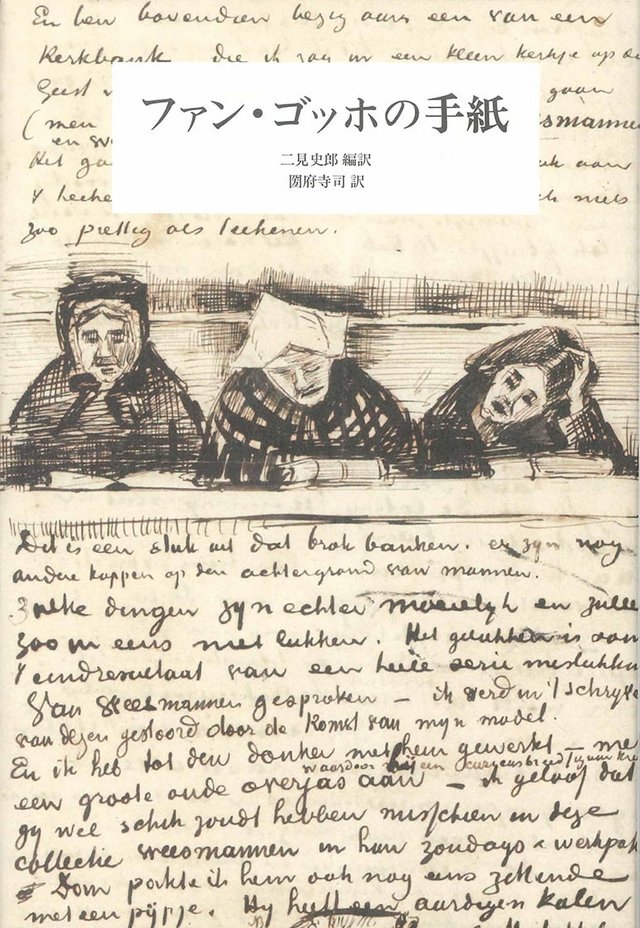 En ben bovendien bezig aan een van een
Kerkbank die ik zag in een klein kerkje op de
Geest gaan
(men weesmannen
en
Het ga aan
't niets
zoo prettig als teekenen.
ファン・ゴッホの手紙
二見史郎 編訳
圀府寺司 訳
Dit is een stuk uit dat brok banken. er zyn nog
andere koppen op den achtergrond van mannen.
Zulke dingen zyn echter moeielyk en zulle
zoo in eens niet lukken. Het gelukken is soms
't eindresultaat van een heele serie mislukkin
Van weesmannen gesproken – ik werd in 't schryve
van dezen gestoord door de komst van myn model.
En ik heb tot den donker met hem gewerkt. – me
een groote oude overjas aan – ik geloof dat
gy wel schik zoudt hebben misschien in deze
collectie weesmannen in hun zondags & werkpak
Dom pakte ik hem ook nog eens zittende
met een pypje. Hy heeft een aardigen kalen